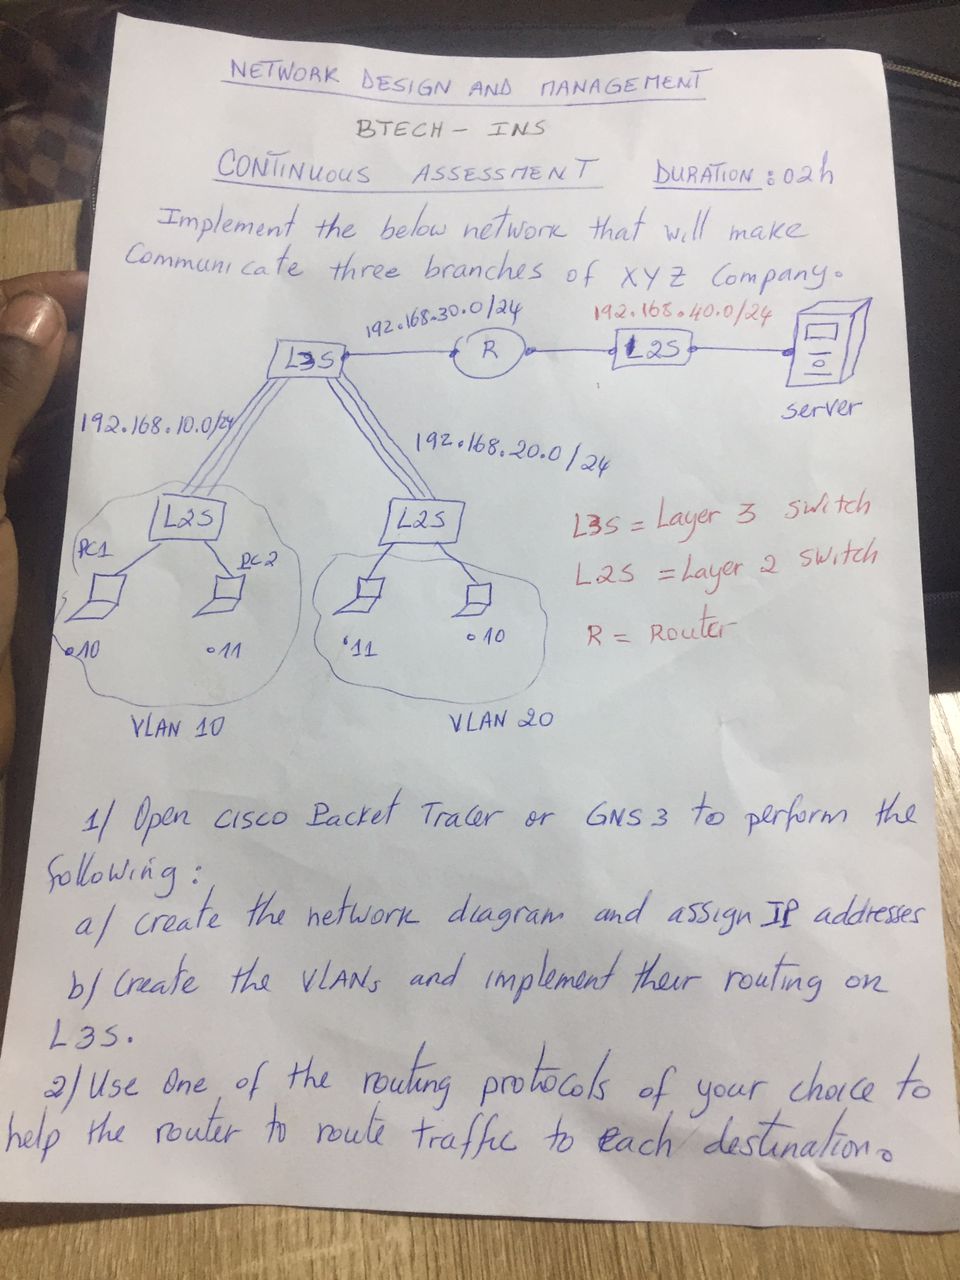 NETWORK DESIGN AND MANAGEMENT
BTECH - INS
CONTINUOUS ASSESSMENT DURATION : 02h
Implement the below network that will make
Communicate three branches of XYZ Company.
192.168.30.0/24
192.168.40.0/24
L3S
R
L2S
server
192.168.10.0/24
192.168.20.0/24
L2S
L2S
L3S = Layer 3 switch
L2S = Layer 2 switch
R = Router
PC1
PC2
.10
.11
.11
.10
VLAN 10
VLAN 20
1/ Open CISCO Packet Tracer or GNS3 to perform the
following :
a/ Create the network diagram and assign IP addresses
b/ Create the VLANs and implement their routing on
L3S.
2/ Use One of the routing protocols of your choice to
help the router to route traffic to each destination.